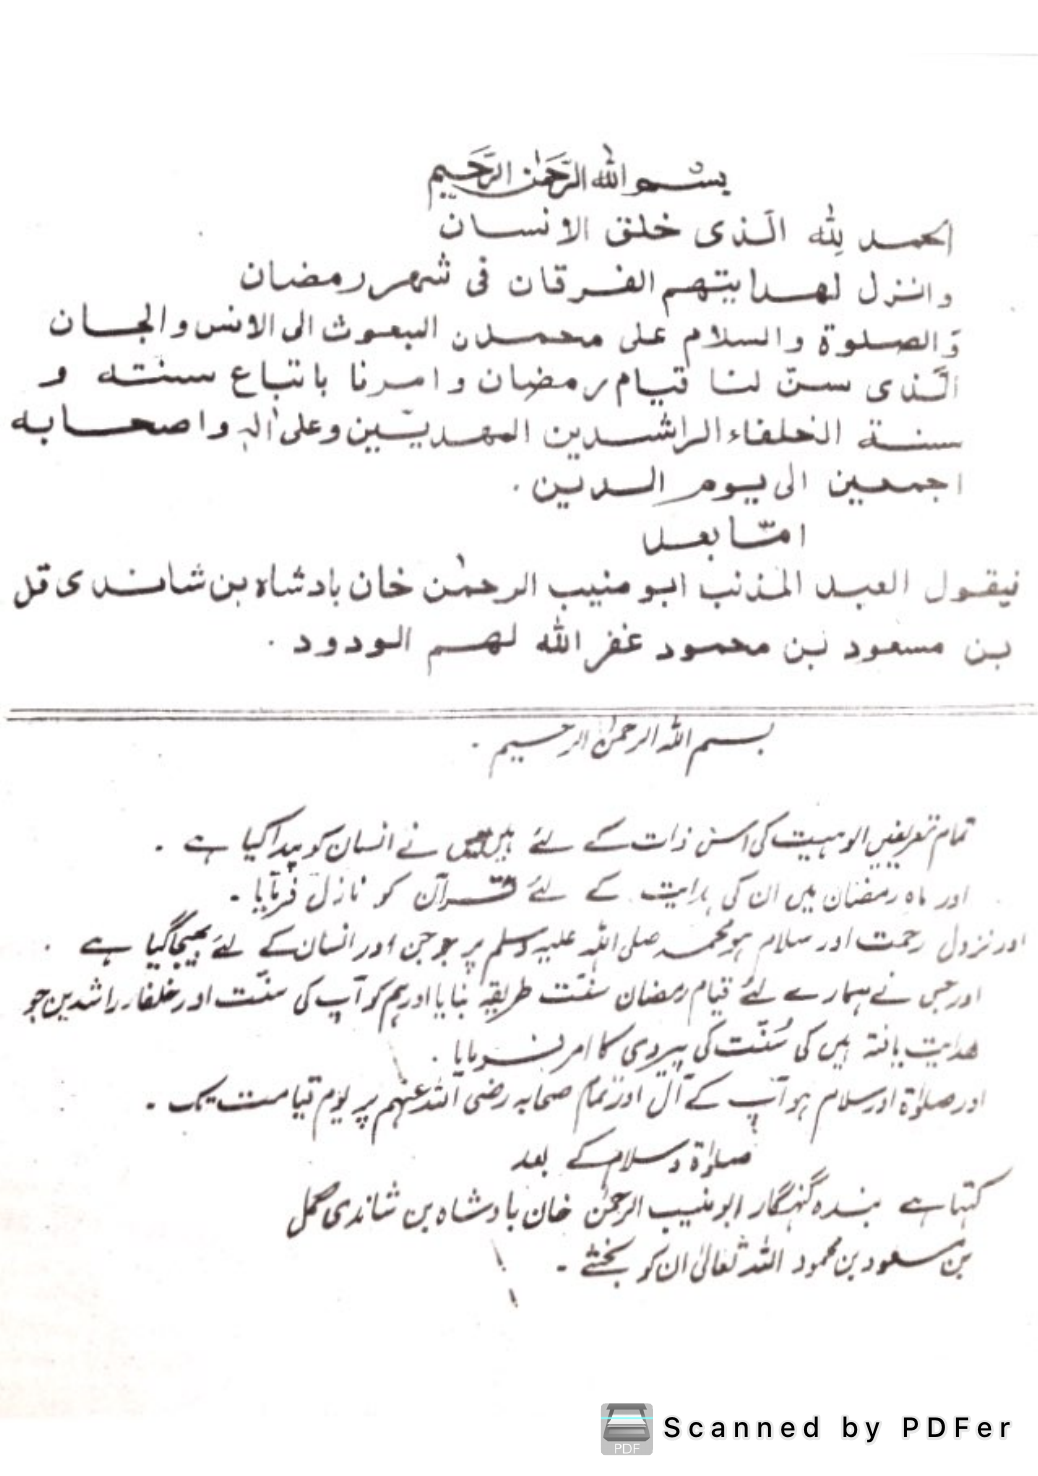 بسم الله الرّحمٰن الرّحيم
الحمد لِله الّذى خلق الانسان
وانزل لهدايتهم الفرقان فى شهر رمضان
وَالصلوة والسلام على محمدن المبعوث الى الانس والجان
الَّذى سنّ لنا قيام رمضان وامرنا باتباع سنته و
سنة الخلفاء الراشدين المهديّين وعلى اٰلہ واصحابه
اجمعين الى يوم الدين .
امّا بعد
فيقول العبد المذنب ابو منيب الرحمٰن خان بادشاه بن شاندى قل
بن مسعود بن محمود غفر الله لهم الودود .
بسم اللہ الرحمٰن الرحیم .
تمام تعریفیں الوہیت کی اس ذات کے لئے ہیں جس نے انسان کو پیدا کیا ہے .
اور ماہ رمضان میں ان کی ہدایت کے لئے قرآن کو نازل فرمایا .
اور نزول رحمت اور سلام ہو محمد صلی اللہ علیہ وسلم پر جو جن اور انسان کے لئے بھیجا گیا ہے .
اور جس نے ہمارے لئے قیام رمضان سنّت طریقہ بنایا اور ہم کو آپ کی سنّت اور خلفاء راشدین جو
ھدایت یافتہ ہیں کی سُنّت کی پیروی کا امر فرمایا .
اور صلوٰة اور سلام ہو آپ کے آل اور تمام صحابہ رضی اللہ عنہم پر یوم قیامت تک .
صلوٰة وسلام کے بعد
کہتا ہے بندہ گنہگار ابو منیب الرحمٰن خان بادشاہ بن شاندی گل
بن مسعود بن محمود اللہ تعالیٰ ان کو بخشے .
PDF
Scanned by PDFer